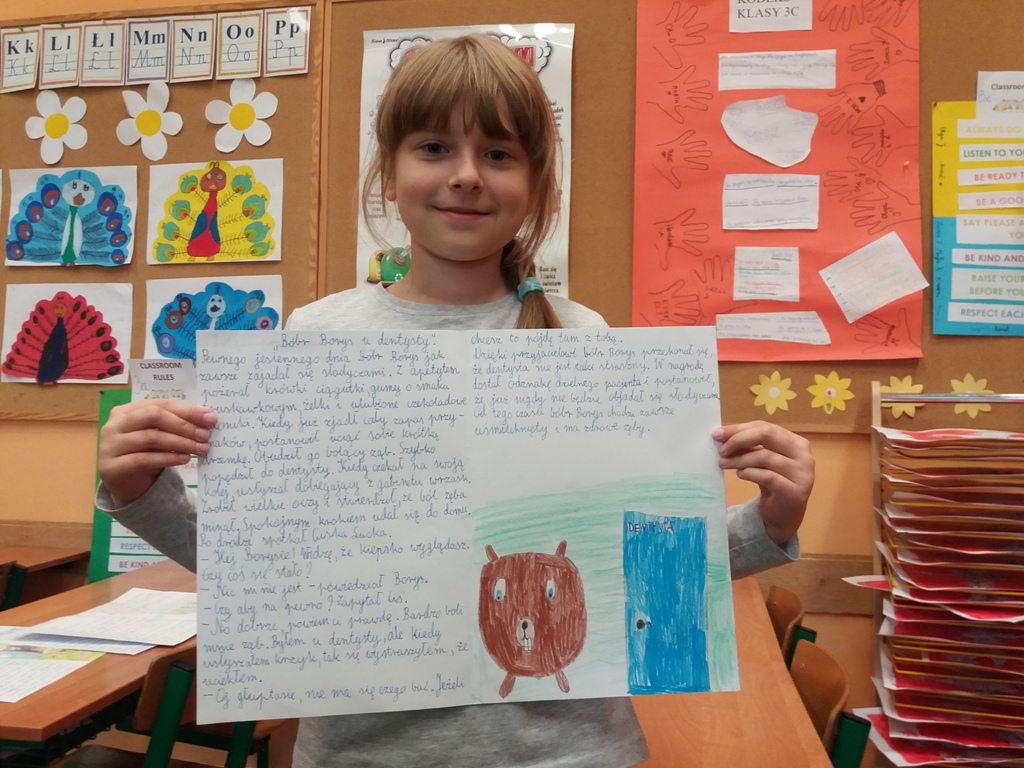 Kk Ll Łł Mm Nn Oo Pp
Kk Ll Łł Mm Nn Oo Pp
KODEKS
KLASY 3C
Classroom
LISTEN TO YOU
BE READY T
BE A GOO
SAY PLEASE A
YOU
BE KIND AND
RAISE YOUR
BEFORE YO
RESPECT EACH
CLASSROOM
RULES
RESPECT
BE KIND
„Bóbr Borys u dentysty”
Pewnego jesiennego dnia bóbr Borys jak
zawsze zajadał się słodyczami. Z apetytem
pożerał krówki, ciągutki, gumy o smaku
truskawkowym, żelki i ulubione czekoladowe
Kiedy już zjadł cały zapas przy-
smaków, postanowił uciąć sobie krótką
drzemkę. Obudził go bolący ząb. Szybko
popędził do dentysty. Kiedy czekał na swoją
kolej, usłyszał dobiegający z gabinetu wrzask.
Zrobił wielkie oczy i stwierdził, że ból zęba
minął. Spokojnym krokiem udał się do domu.
Po drodze spotkał liska
- Hej Borysie! Widzę, że kiepsko wyglądasz.
Czy coś się stało?
- Nic mi nie jest - powiedział Borys.
- Czy aby na pewno? Zapytał lis.
- No dobrze, powiem ci prawdę. Bardzo boli
mnie ząb. Byłem u dentysty, ale kiedy
usłyszałem krzyk, tak się wystraszyłem, że
uciekłem.
- Oj głuptasie, nie ma się czego bać. Jeżeli
chcesz to pójdę tam z tobą.
Dzięki przyjacielowi bóbr Borys przekonał się,
że dentysta nie jest taki straszny. W nagrodę
dostał odznakę dzielnego pacjenta i postanowił,
że już nigdy nie będzie objadał się słodyczami.
Od tego czasu bóbr Borys chodzi zawsze
uśmiechnięty i ma zdrowe zęby.
DENTYSTA